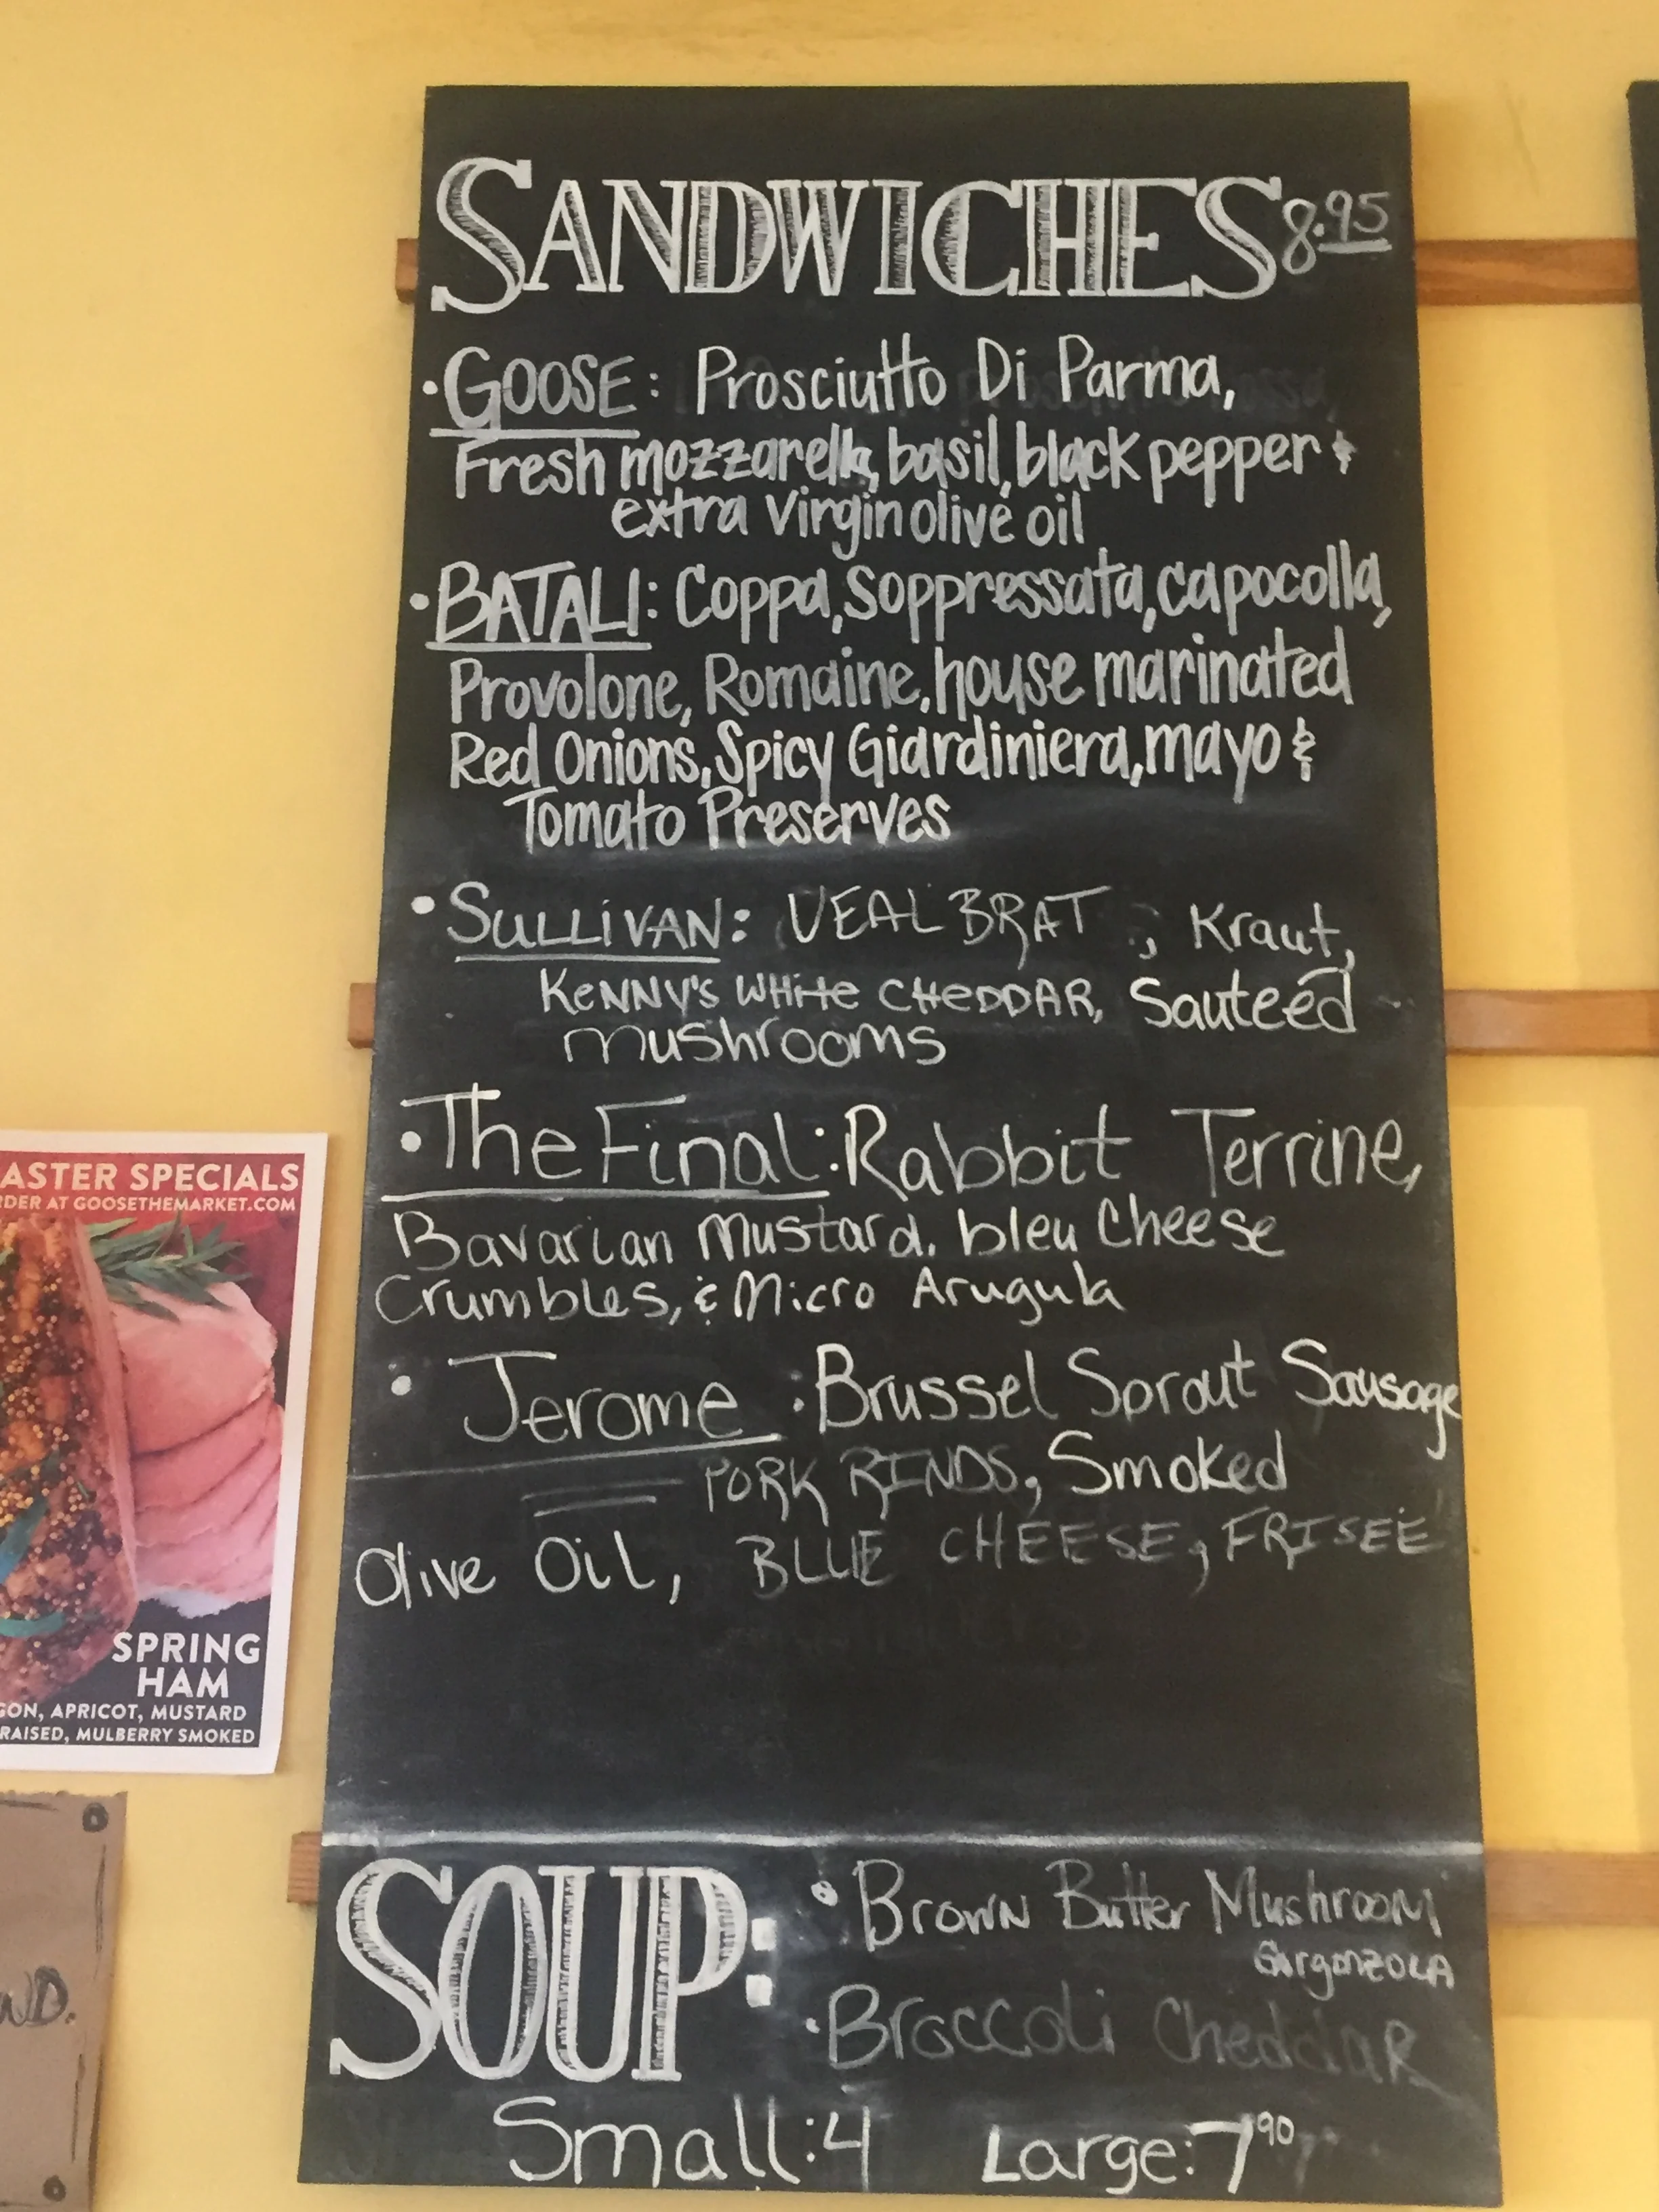 SANDWICHES 8.95
• GOOSE: Prosciutto Di Parma,
Fresh mozzarella, basil, black pepper &
extra Virgin olive oil
• BATALI: Coppa, Soppressata, capocolla,
Provolone, Romaine, house marinated
Red Onions, Spicy Giardiniera, mayo &
Tomato Preserves
• SULLIVAN: VEAL BRAT, Kraut,
KENNY'S WHITE CHEDDAR, Sauteéd
mushrooms
• The Final: Rabbit Terrine,
Bavarian Mustard, bleu Cheese
Crumbles, & Micro Arugula
• Jerome: Brussel Sprout Sausage
PORK RINDS, Smoked
Olive Oil, BLUE CHEESE, FRISEÉ
SOUP:
• Brown Butter Mushroom
Gorgonzola
• Broccoli Cheddar
Small: 4 Large: 7 90
ASTER SPECIALS
RDER AT GOOSETHEMARKET.COM
SPRING
HAM
GON, APRICOT, MUSTARD
RAISED, MULBERRY SMOKED